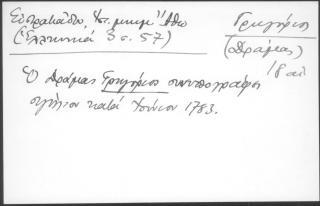 Εὐστρατιάδου, Ἱστ. μνημ. Ἄθω
Γρηγόριος
(Ἑλληνικά 3 σ. 57)
(Δράμας)
18 αἰ
Ὁ Δράμας Γρηγόριος συνυπογράφει
κατά Ἰούνιον 1783.